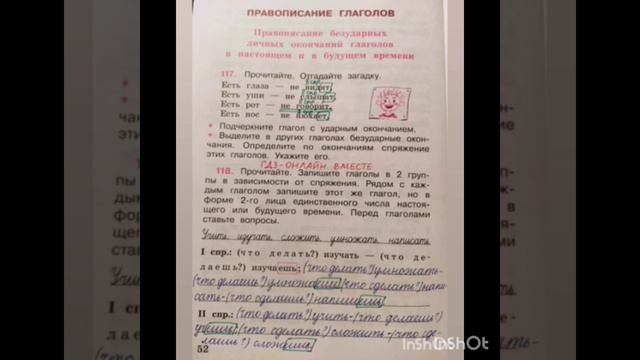 ПРАВОПИСАНИЕ ГЛАГОЛОВ
Правописание безударных
личных окончаний глаголов
в настоящем и в будущем времени
117. Прочитайте. Отгадайте загадку.
Есть глаза — не видят,
Есть уши — не слышат,
Есть рот — не говорит,
Есть нос — не нюхает.
• Подчеркните глагол с ударным окончанием.
• Выделите в других глаголах безударные окон-
чания. Определите по окончаниям спряжение
этих глаголов. Укажите его.
ГДЗ-ОНЛАЙН. ВМЕСТЕ
118. Прочитайте. Запишите глаголы в 2 груп-
пы в зависимости от спряжения. Рядом с каж-
дым глаголом запишите этот же глагол, но в
форме 2-го лица единственного числа настоя-
щего или будущего времени. Перед глаголами
ставьте вопросы.
Учить, изучать, сложить, умножать, написать.
I спр.: (что делать?) изучать — (что де-
лаешь?) изучаешь; (что делать?) умножать-
(что делаешь?) умножаешь; (что сделать?) напи-
сать-(что сделаешь?) напишешь.
II спр.: (что делать?) учить-(что делаешь?)
учишь, (что сделать?) сложить-(что сде-
лаешь?) сложишь.
52
InShOt